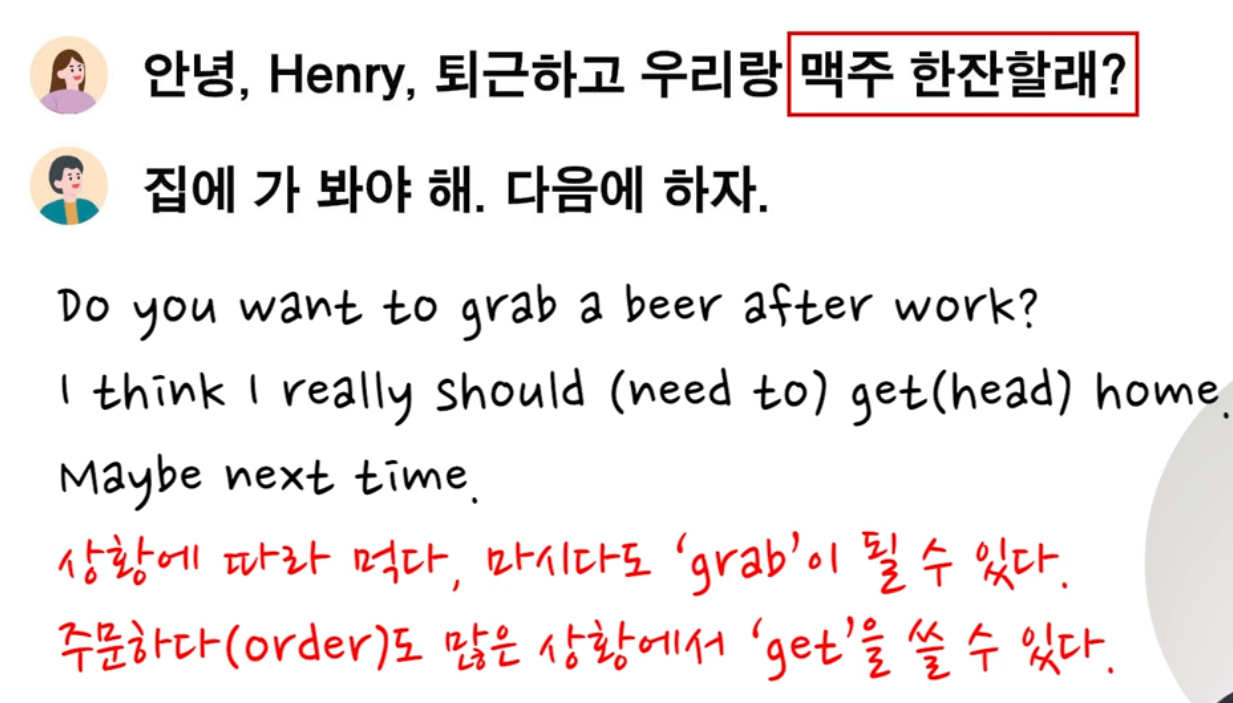 안녕, Henry, 퇴근하고 우리랑 맥주 한잔할래?
집에 가 봐야 해. 다음에 하자.
Do you want to grab a beer after work?
I think I really should (need to) get(head) home.
Maybe next time.
상황에 따라 먹다, 마시다도 ‘grab’이 될 수 있다.
주문하다(order)도 많은 상황에서 ‘get’을 쓸 수 있다.